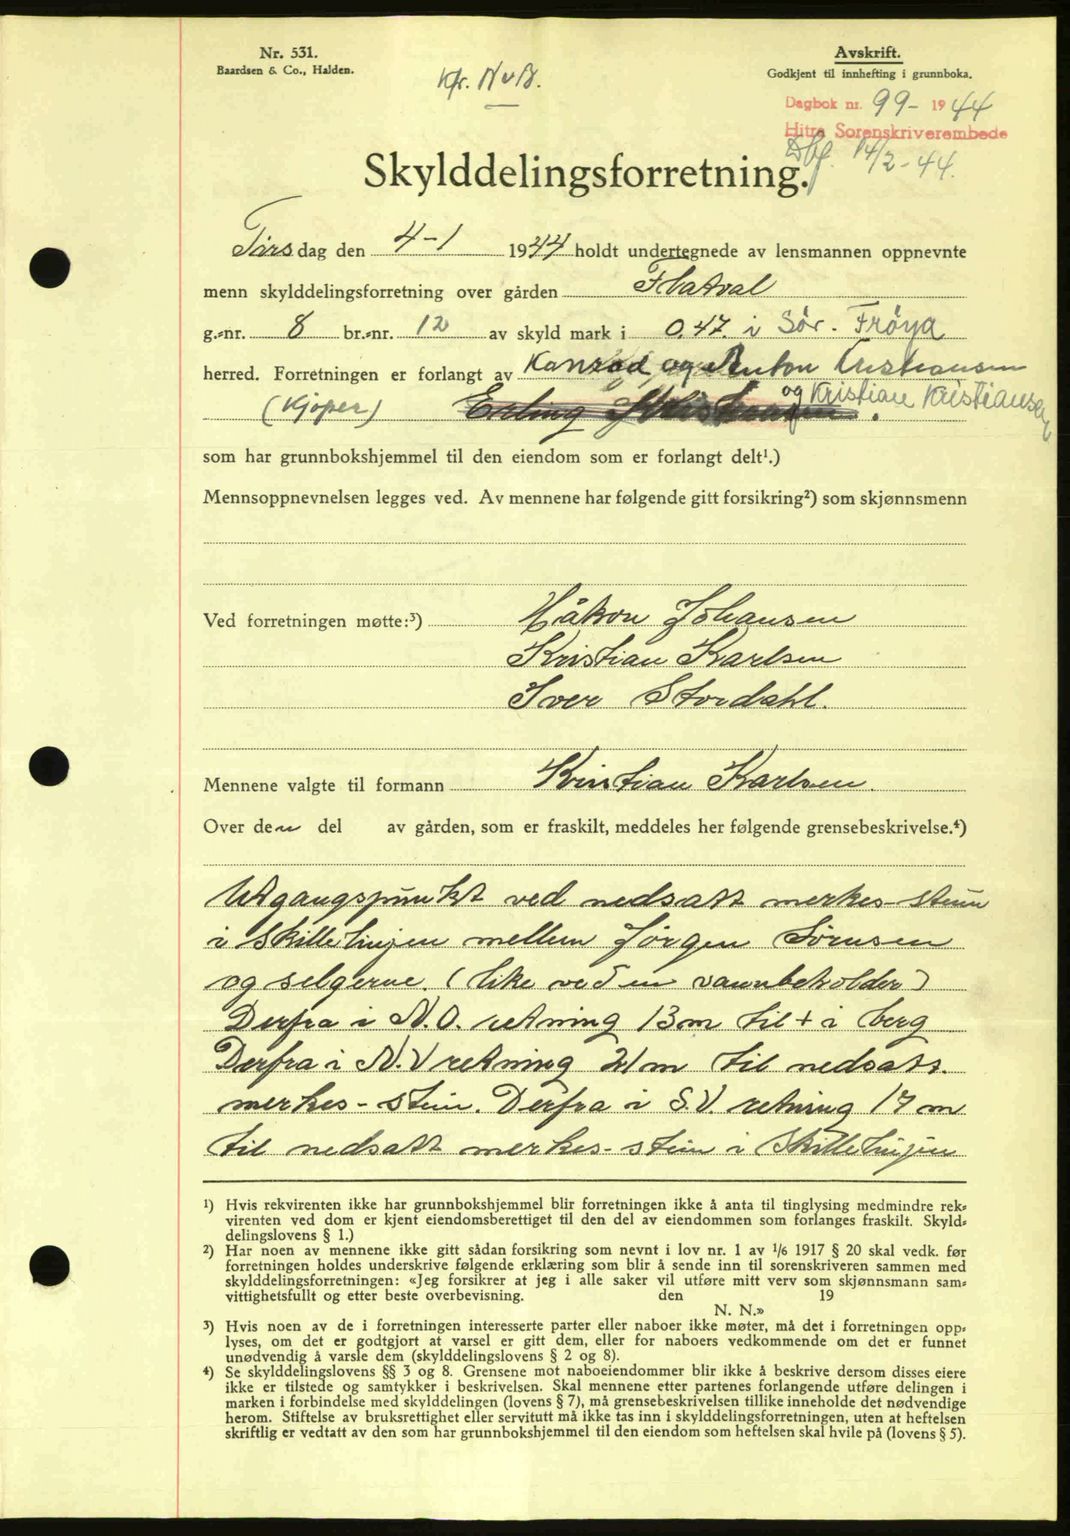 Nr. 531.
Baardsen & Co., Halden.
Kfr. N v B.
Avskrift.
Godkjent til innhefting i grunnboka.
Dagbok nr. 99- 1944
Hitra Sorenskriverembede
Dbf. 14/2-44.
Skylddelingsforretning.
Tirsdag den 4-1 1944 holdt undertegnede av lensmannen oppnevnte
menn skylddelingsforretning over gården Flatval
g.-nr. 8 br.-nr. 12 av skyld mark i 0,47. i Sør. Frøya
herred. Forretningen er forlangt av Konrad og Anton Kristiansen
(Kjøper) Erling og Kristian Kristiansen
som har grunnbokshjemmel til den eiendom som er forlangt delt¹.)
Mennsoppnevnelsen legges ved. Av mennene har følgende gitt forsikring²) som skjønnsmenn
Ved forretningen møtte:³) Håkon Johansen
Kristian Karlsen
Iver Stordahl.
Mennene valgte til formann Kristian Karlsen.
Over den del av gården, som er fraskilt, meddeles her følgende grensebeskrivelse.⁴)
Utgangspunkt ved nedsatt merkes-stein
i skillelinjen mellem Jørgen Sørensen
og selgerne. (like ved en vannbeholder)
Derfra i N.O. retning 13 m til + i berg
Derfra i N.V retning 21 m til nedsatt.
merkes-stein. Derfra i S.V. retning 17 m
til nedsatt merkes-stein i skillelinjen
¹) Hvis rekvirenten ikke har grunnbokshjemmel blir forretningen ikke å anta til tinglysing medmindre rek-
virenten ved dom er kjent eiendomsberettiget til den del av eiendommen som forlanges fraskilt. Skyld-
delingslovens § 1.)
²) Har noen av mennene ikke gitt sådan forsikring som nevnt i lov nr. 1 av 1/6 1917 § 20 skal vedk. før
forretningen holdes underskrive følgende erklæring som blir å sende inn til sorenskriveren sammen med
skylddelingsforretningen: «Jeg forsikrer at jeg i alle saker vil utføre mitt verv som skjønnsmann sam-
vittighetsfullt og etter beste overbevisning. den 19
N. N.»
³) Hvis noen av de i forretningen interesserte parter eller naboer ikke møter, må det i forretningen opp-
lyses, om det er godtgjort at varsel er gitt dem, eller for naboers vedkommende om det er funnet
unødvendig å varsle dem (skylddelingslovens § 2 og 8).
⁴) Se skylddelingslovens §§ 3 og 8. Grensene mot naboeiendommer blir ikke å beskrive dersom disses eiere
ikke er tilstede og samtykker i beskrivelsen. Skal mennene etter partenes forlangende utføre delingen i
marken i forbindelse med skylddelingen (lovens § 7), må grensebeskrivelsen tillike inneholde det nødvendige
herom. Stiftelse av bruksrettighet eller servitutt må ikke tas inn i skylddelingsforretningen, uten at heftelsen
skriftlig er vedtatt av den som har grunnbokshjemmel til den eiendom som heftelsen skal hvile på (lovens § 5).